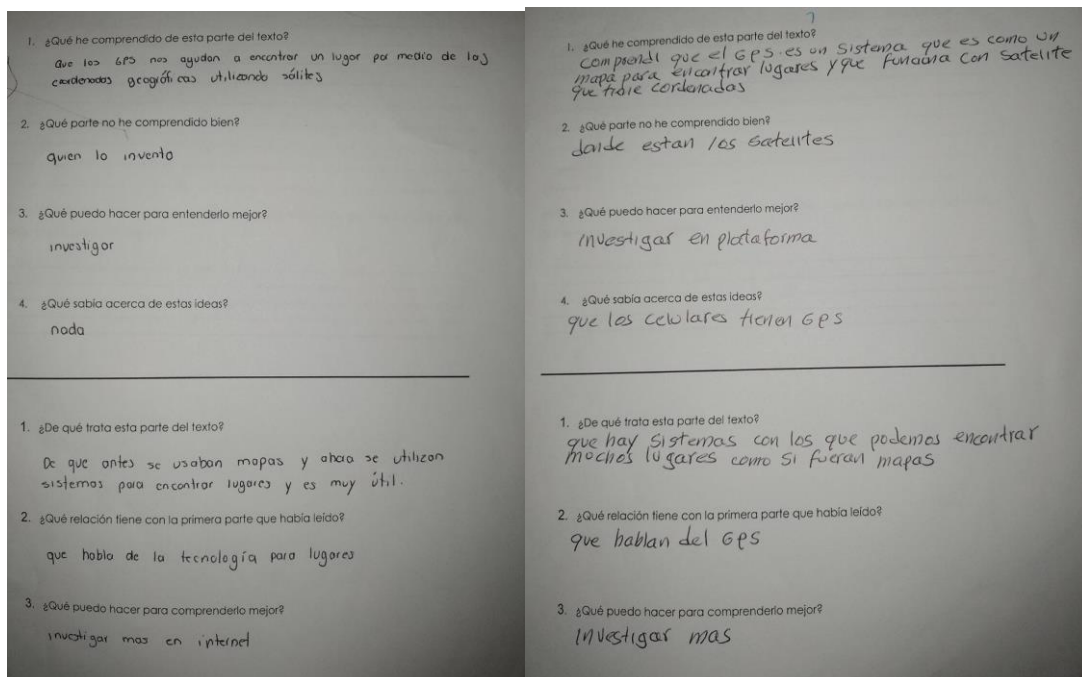 1. ¿Qué he comprendido de esta parte del texto?
Que los GPS nos ayudan a encontrar un lugar por medio de las
coordenadas geográficas utilizando sálites
2. ¿Qué parte no he comprendido bien?
quien lo invento
3. ¿Qué puedo hacer para entenderlo mejor?
investigar
4. ¿Qué sabía acerca de estas ideas?
nada
1. ¿De qué trata esta parte del texto?
De que antes se usaban mapas y ahora se utilizan
sistemas para encontrar lugares y es muy útil.
2. ¿Qué relación tiene con la primera parte que había leído?
que habla de la tecnología para lugares
3. ¿Qué puedo hacer para comprenderlo mejor?
investigar mas en internet
1. ¿Qué he comprendido de esta parte del texto?
comprendi que el GPS es un sistema que es como un
mapa para encontrar lugares y que funciona con satelite
que tiene cordenadas
2. ¿Qué parte no he comprendido bien?
donde estan los satelites
3. ¿Qué puedo hacer para entenderlo mejor?
investigar en plataforma
4. ¿Qué sabía acerca de estas ideas?
que los celulares tienen GPS
1. ¿De qué trata esta parte del texto?
que hay sistemas con los que podemos encontrar
mochos lugares como si fueran mapas
2. ¿Qué relación tiene con la primera parte que había leído?
que hablan del GPS
3. ¿Qué puedo hacer para comprenderlo mejor?
investigar mas